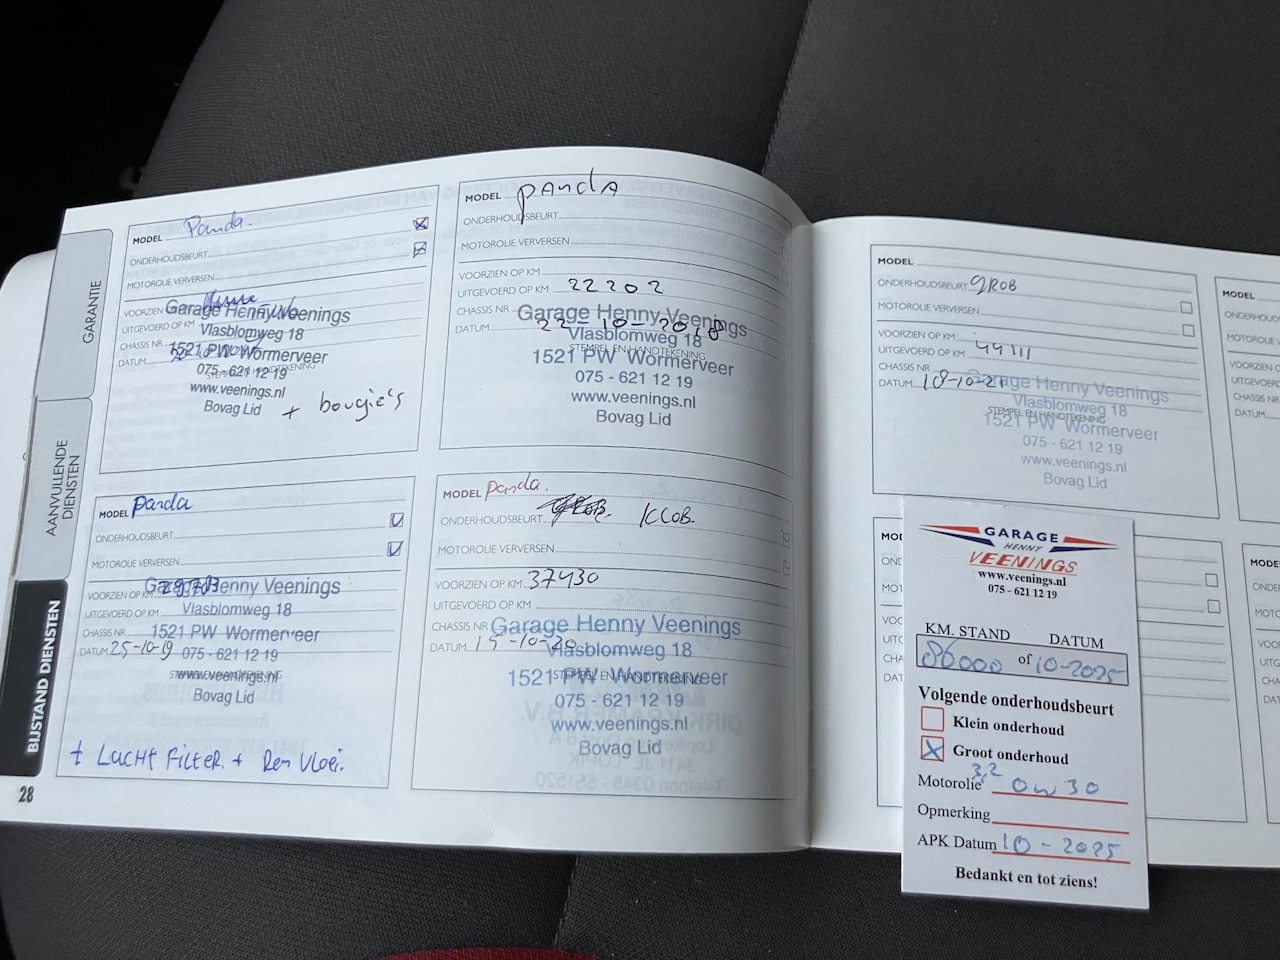 GARANTIE
AANVULLENDE
DIENSTEN
BIJSTAND DIENSTEN
28
MODEL Panda.
ONDERHOUDSBEURT
MOTOROLIE VERVERSEN
VOORZIEN OP KM
UITGEVOERD OP KM
CHASSIS NR
DATUM
Garage Henny Veenings
Vlasblomweg 18
1521 PW Wormerveer
STEMPEL EN HANDTEKENING
075 - 621 12 19
www.veenings.nl
Bovag Lid
+ bougie's
MODEL panda
ONDERHOUDSBEURT
MOTOROLIE VERVERSEN
VOORZIEN OP KM
UITGEVOERD OP KM 22202
CHASSIS NR
DATUM 22-10-2018
Garage Henny Veenings
Vlasblomweg 18
STEMPEL EN HANDTEKENING
1521 PW Wormerveer
075 - 621 12 19
www.veenings.nl
Bovag Lid
MODEL panda
ONDERHOUDSBEURT
MOTOROLIE VERVERSEN
VOORZIEN OP KM
UITGEVOERD OP KM
CHASSIS NR
DATUM 25-10-19
Garage Henny Veenings
Vlasblomweg 18
1521 PW Wormerveer
075 - 621 12 19
STEMPEL EN HANDTEKENING
www.veenings.nl
Bovag Lid
+ LUCHT FILTER. + Rem Vloei.
MODEL panda.
ONDERHOUDSBEURT KLOB.
MOTOROLIE VERVERSEN
VOORZIEN OP KM 37430
UITGEVOERD OP KM
CHASSIS NR
DATUM 15-10-20
Garage Henny Veenings
Vlasblomweg 18
STEMPEL EN HANDTEKENING
1521 PW Wormerveer
075 - 621 12 19
www.veenings.nl
Bovag Lid
MODEL
ONDERHOUDSBEURT GROB
MOTOROLIE VERVERSEN
VOORZIEN OP KM
UITGEVOERD OP KM 44111
CHASSIS NR
DATUM 18-10-21
Garage Henny Veenings
Vlasblomweg 18
STEMPEL EN HANDTEKENING
1521 PW Wormerveer
075 - 621 12 19
www.veenings.nl
Bovag Lid
MODEL
GARAGE
HENNY
VEENINGS
www.veenings.nl
075 - 621 12 19
KM. STAND DATUM
86000 of 10-2025
Volgende onderhoudsbeurt
Klein onderhoud
Groot onderhoud
Motorolie 3,2 0w30
Opmerking
APK Datum 10-2025
Bedankt en tot ziens!